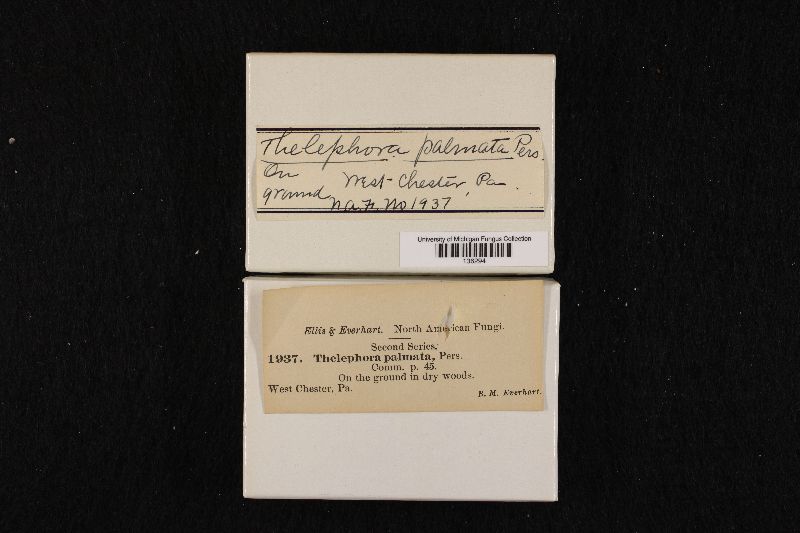 Thelephora palmata Pers.
On
ground, West-Chester, Pa.
N.A.F. No 1937
University of Michigan Fungus Collection
136294
Ellis & Everhart. North American Fungi.
Second Series.
1937. Thelephora palmata, Pers.
Comm. p. 45.
On the ground in dry woods.
West Chester, Pa.
B. M. Everhart.